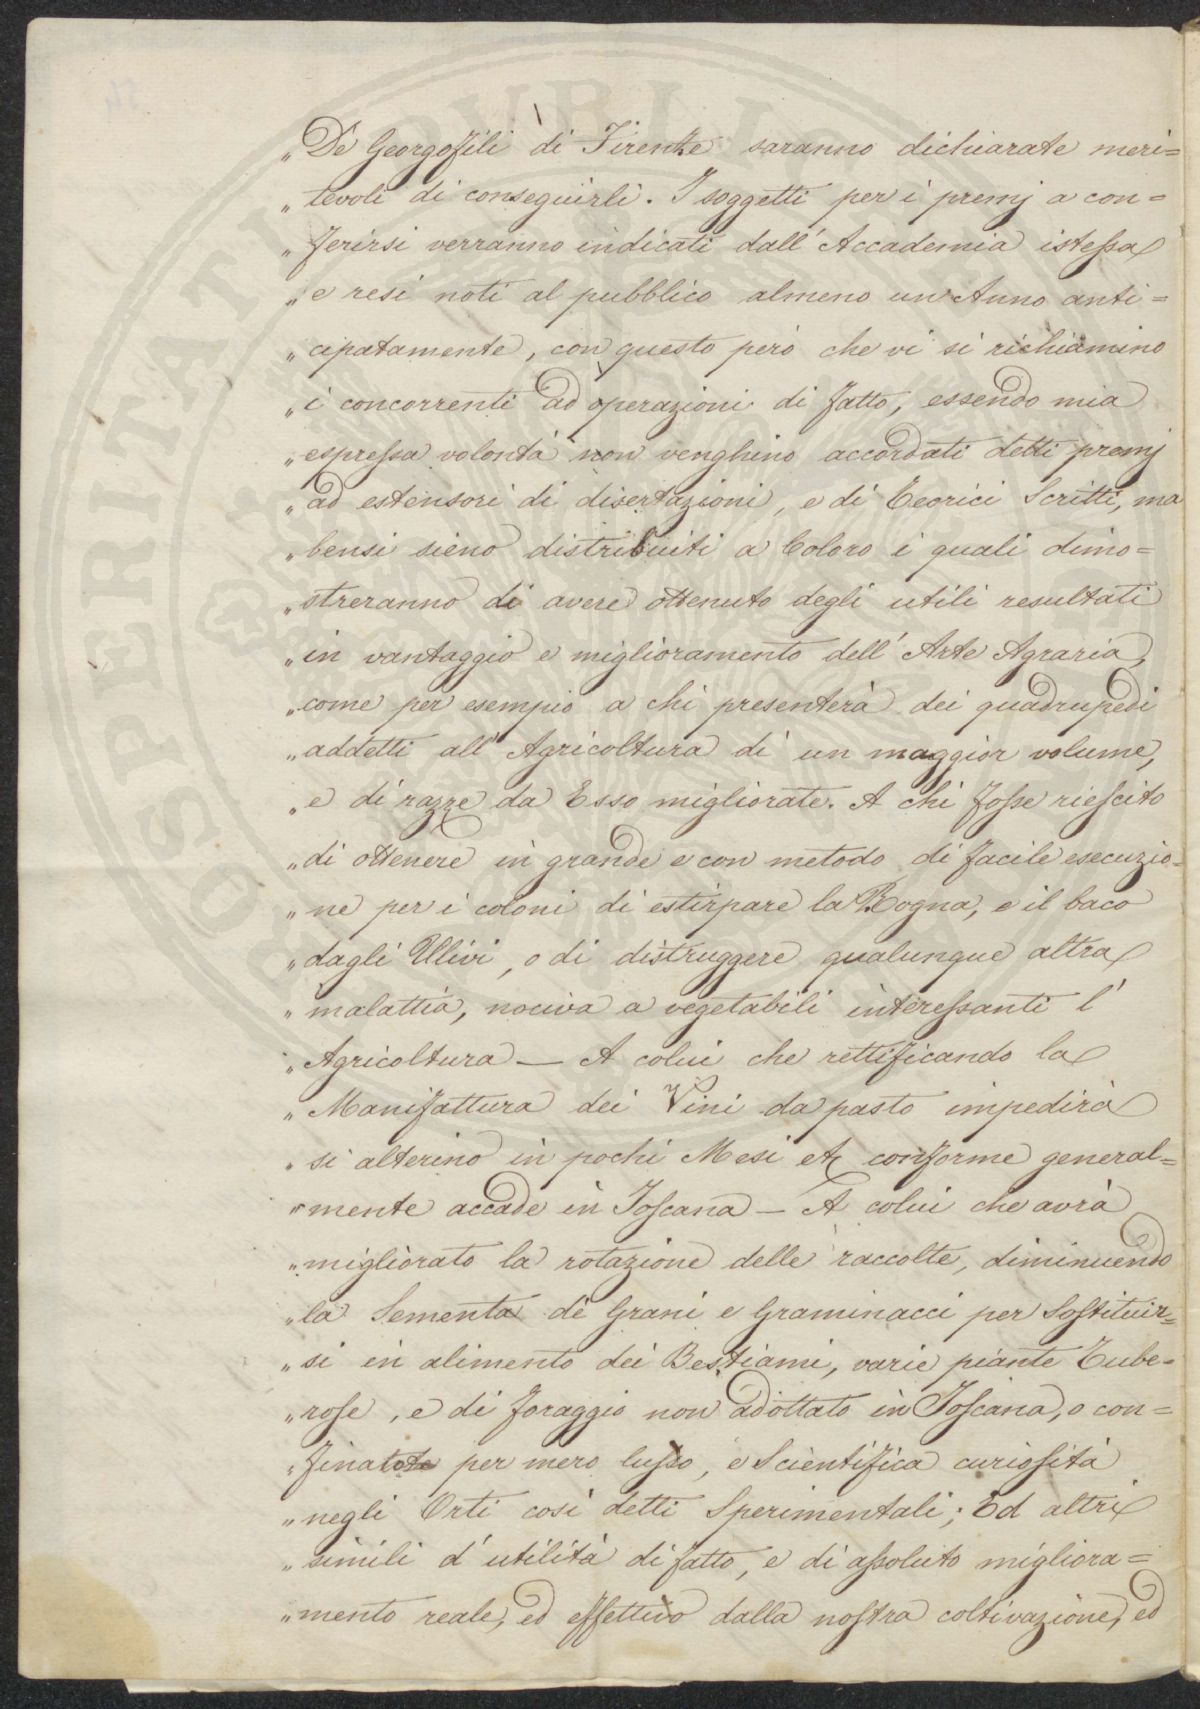 „ De Georgofili di Firenze saranno dichiarate meri=
„ tevoli di conseguirli. I soggetti per i premj a con=
„ ferirsi verranno indicati dall' Accademia istessa
„ e resi noti al pubblico almeno un Anno anti=
„ cipatamente, con questo però che vi si richiamino
„ i concorrenti ad operazioni di fatto, essendo mia
„ espressa volontà non venghino accordati detti premj
„ ad estensori di disertazioni, e di Teorici Scritti, ma
„ bensi sieno distribuiti a Coloro i quali dimo=
„ streranno di avere ottenuto degli utili resultati
„ in vantaggio e miglioramento dell' Arte Agraria,
„ come per esempio a chi presenterà dei quadrupedi
„ addetti all' Agricoltura di un maggior volume,
„ e di razze da Esso migliorate. A chi fosse riescito
„ di ottenere in grande e con metodo di facile esecuzio=
„ ne per i coloni di estirpare la Rogna, e il baco
„ dagli Ulivi, o di distruggere qualunque altra
„ malattia, nociva a vegetabili interessanti l'
„ Agricoltura — A colui che rettificando la
„ Manifattura dei Vini da pasto impedirà
„ si alterino in pochi Mesi conforme general=
„ mente accade in Toscana — A colui che avrà
„ migliorato la rotazione delle raccolte, diminuendo
„ la Sementa di Grani e Graminacci per Sostituir=
„ si in alimento dei Bestiami, varie piante Tube=
„ rose, e di foraggio non adottato in Toscana, o con=
„ finato per mero lusso, e Scientifica curiosità
„ negli Orti così detti Sperimentali; Ed altri
„ simili d' utilità di fatto, e di assoluto migliora=
„ mento reale, ed effettivo dalla nostra coltivazione, ed
OSPERITATI PUBLICAE